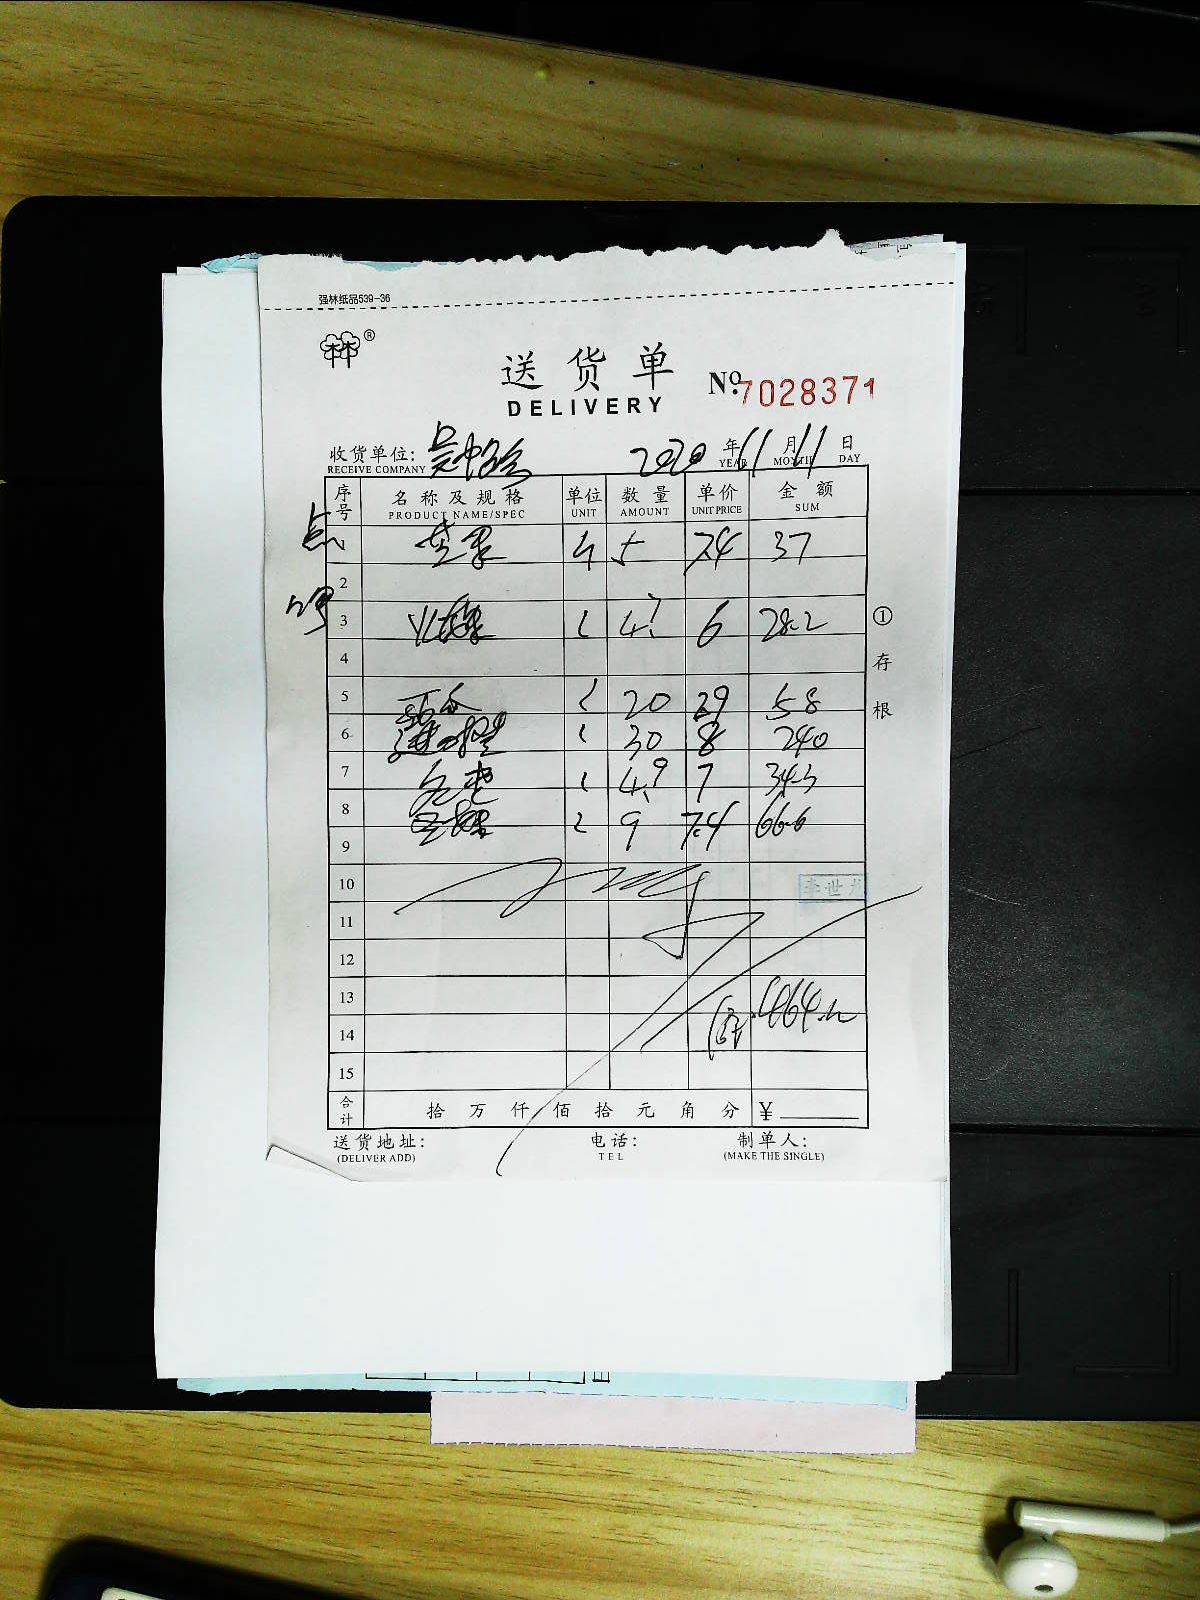 强林纸品539-36
林®
送货单
No. 7028371
DELIVERY
收货单位: 2020 年 11 月 11 日
RECEIVE COMPANY YEAR MONTH DAY
序号 名称及规格 单位 数量 单价 金额
PRODUCT NAME/SPEC UNIT AMOUNT UNIT PRICE SUM
1 芒果 斤 5 7.4 37
2
3 火龙果 4.7 6 28.2
4
5 西瓜 20 2.9 58
6 30 8 240
7 冬枣 4.9 7 34.3
8 9 7.4 66.6
9
10
11
12
13 464.2
14
15
合计 拾 万 仟 佰 拾 元 角 分 ¥
①存根
送货地址: 电话: 制单人:
(DELIVER ADD) TEL (MAKE THE SINGLE)